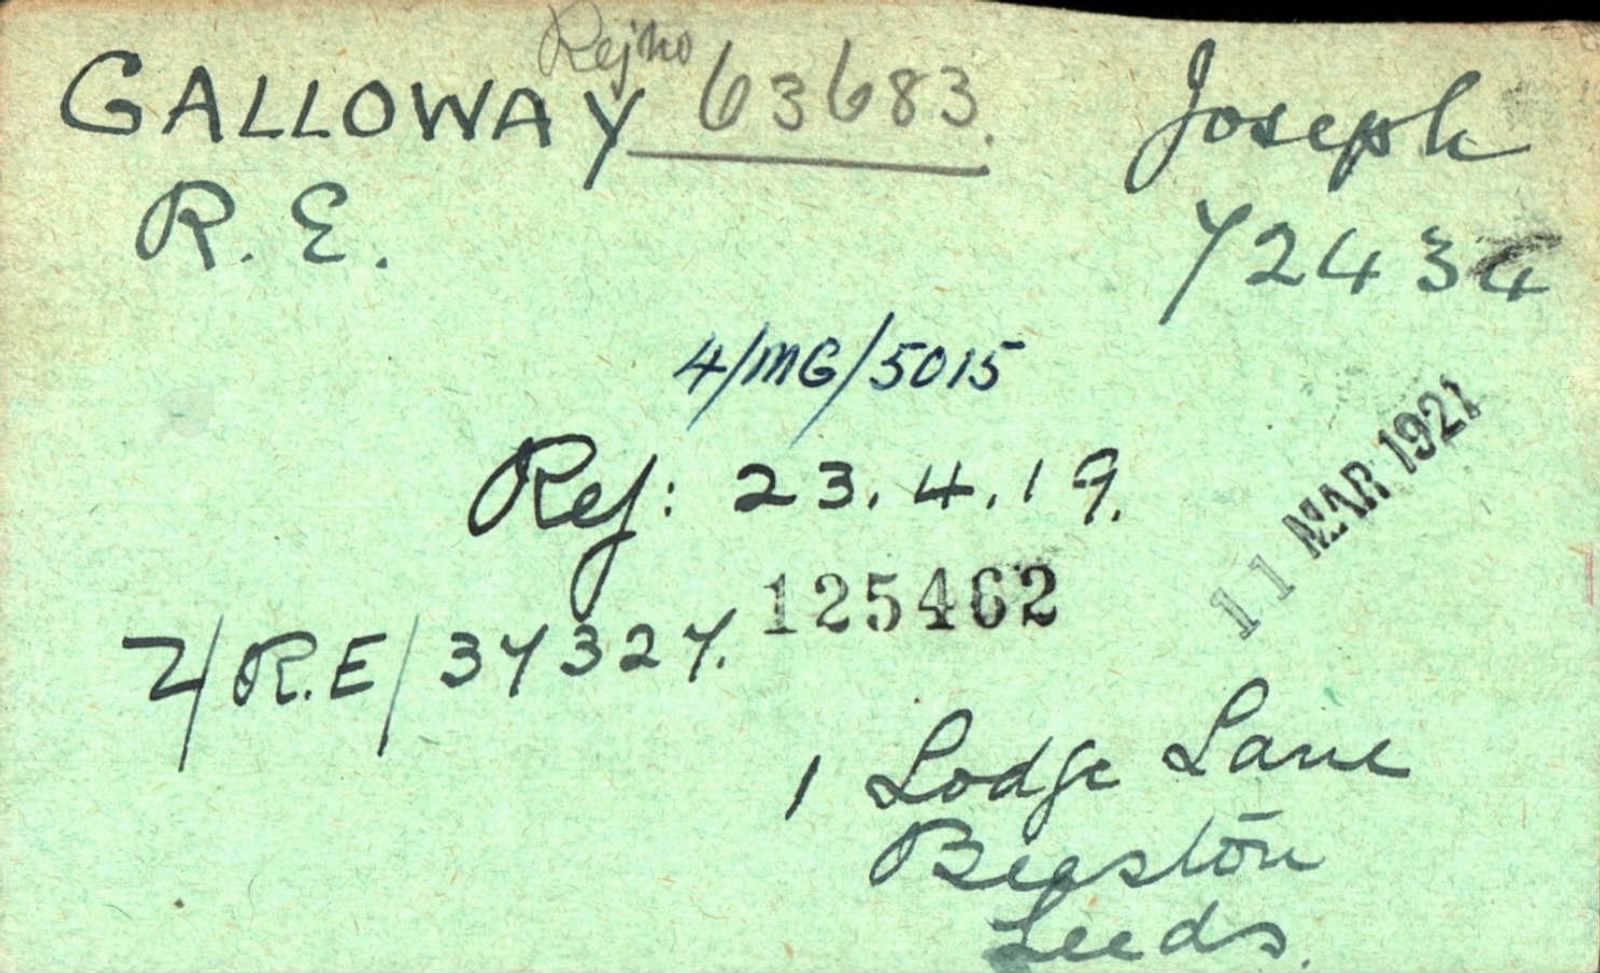 GALLOWAY Rej no 63683. Joseph
R.E. 72434
4/MG/5015
Rej: 23.4.19.
11 MAR 1921
125462
2/R.E/37327.
1 Lodge Lane
Beeston
Leeds.